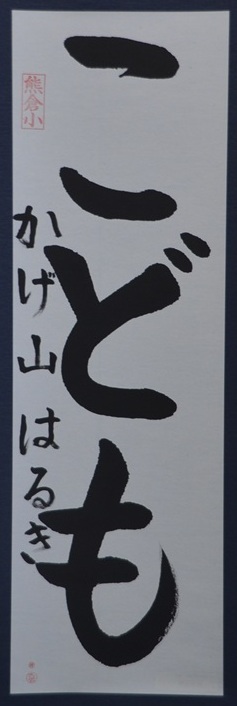 こども
かげ山はるき
熊倉小